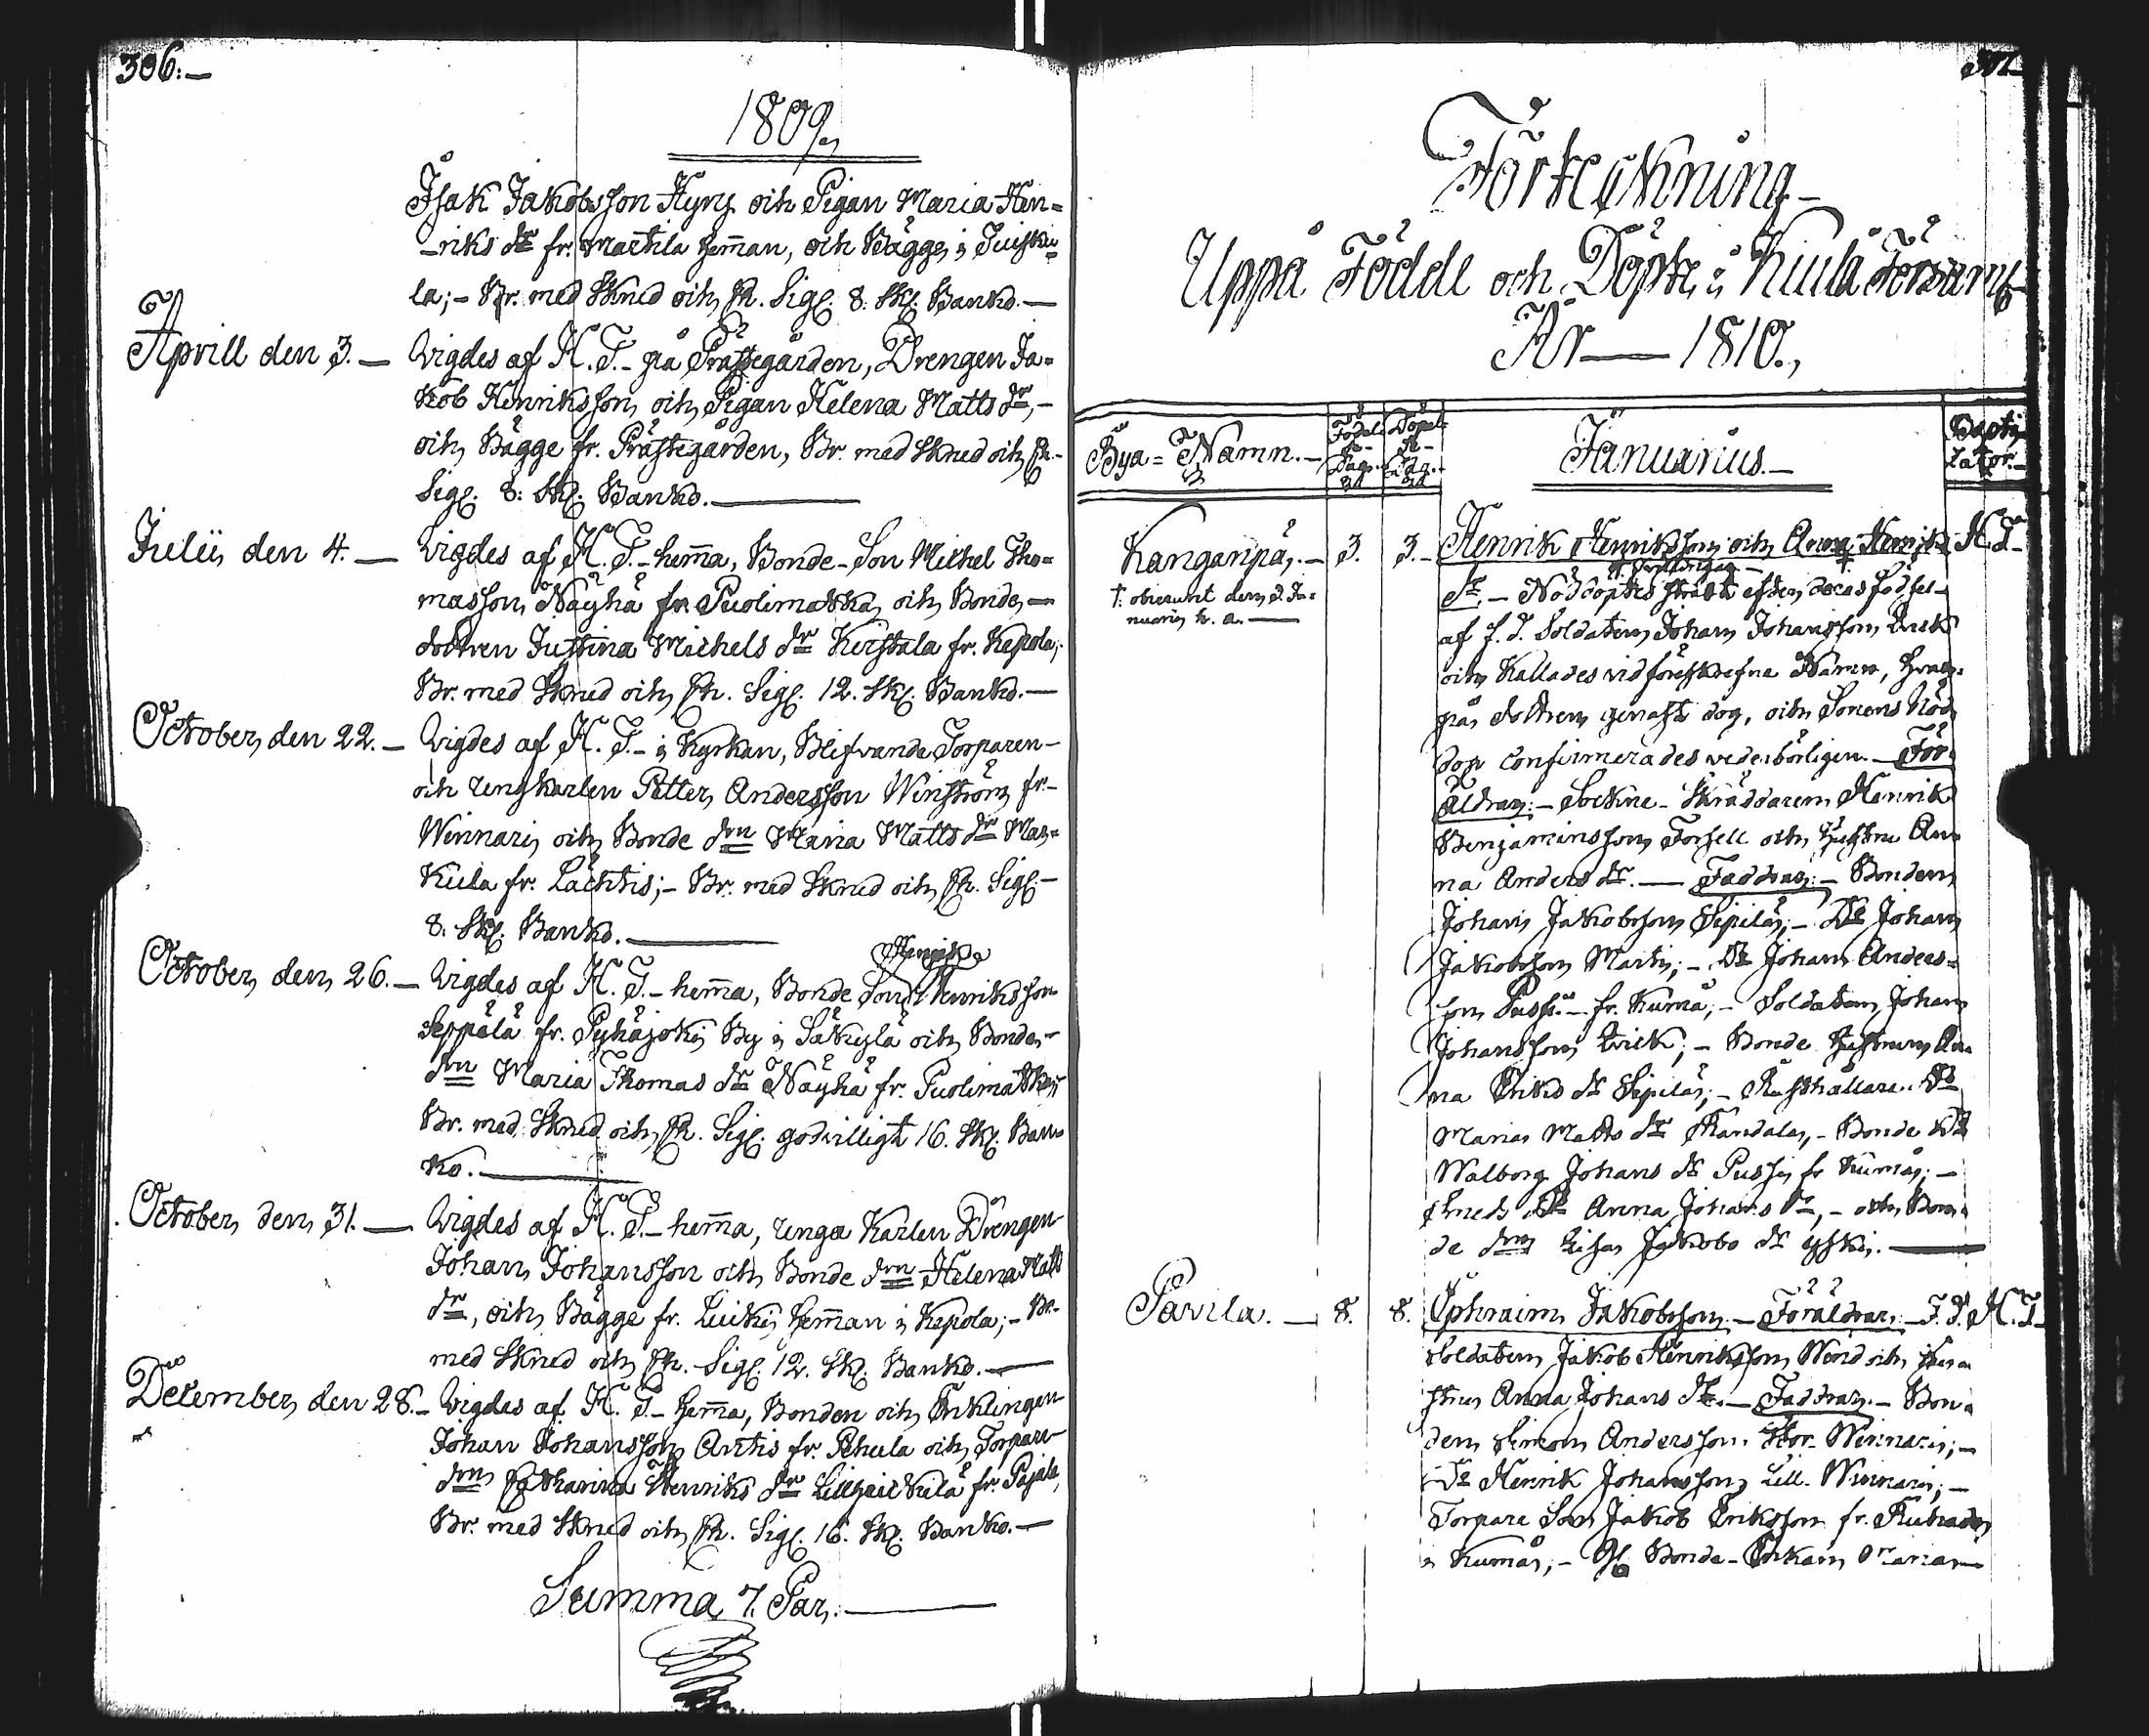 306.—
1809.,
Isak Jakobsson Hyrÿ och Pigan Maria Hen=
-riks dr fr. Martila heman, och Bägge i Tuisku=
la;- Br. med Skrud och Ch. Sigl. 8. Sk. Banko.—
Aprill den 3.— Vigdes af K. T.- på Prästegården, Drengen Ja=
kob Henriksson, och Pigan Helena Matts dr,-
och Bägge fr. Prästegården, Br. med Skrud och Ch.-
Sigl. 8: Sk. Banko.—
Julii den 4.— Vigdes af K. T.- hemma, Bonde-Son Michel Tho=
masson Näyhä fr. Puolimatka, och Bonde,—
dottren Justina Michels dr Keistala fr. Kepola;-
Br. med Skrud och Ch. Sigl. 12. Sk. Banko.—
October, den 22.— Vigdes af K. T.- i Kyrkan, Blifvande Torparen-
och ungkarlen Petter Andersson Winström fr.-
Winnari och Bonde drn Maria Matts dr Man=
kula fr. Lächtis;- Br. med Skrud och Ch. Sigl.-
8. Sk. Banko.—
Henrik
October, den 26.— Vigdes af K. T.- hemma, Bonde Son Henriksson
Seppälä fr. Pyhäjoki By i Säkylä och Bonde,-
drn Maria Thomas dr Näyhä fr. Puolimatka;
Br. med Skrud och Ch. Sigl. godvilligt 16. Sk. Ban=
ko.—
October, den 31.— Vigdes af K. T.- hemma, unga Karlen Drengen
Johan Johansson och Bonde drn Helena Matts
dr, och Bägge fr. Luiki heman i Kepola;- Br.
med Skrud och Ch. Sigl. 12. Sk. Banko.—
December, den 28.- Vigdes af K. T.- hemma, Bonden och Enklingen
Johan Johansson Antis fr. och Torpare
drn Catharina Henriks dr fr. Pajala,
Br. med Skrud och Ch. Sigl. 16. Sk. Banko.—
Summa, 7. Par.—
Förteckning-
Uppå Födde och Döpte i Kiula Församl
År — 1810.,
Bya=Namn.-
Födel=
se-
Dag.
Döpel=
se-
Dag.
Januarius.-
Bapti=
zator.-
Kanganpä,.— 3. 3.- Henrik Henriksson, och Anna Henriks K. T-
†. obierunt den 3. Ja=
nuarii h. a.—
dr.- Nöddöptes strax efter deras födsel-
af f. d. Soldaten Johan Johansson Quick
och Kallades vid föreskrefne Namn, hvar=
på dottren genast dog, och Sonens Nöd
dop confirmerades vederbörligen.- För
äldrar:- Sockne-Skräddaren Henrik
Benjaminsson Forsell och hustru An=
na Anders dr.— Faddrar:- Bonden
Johan Jakobsson Sipilä;- Do Johan
Jakobsson Marti;- Do Johan Anders=
son Pussi- fr. Kumå;- Soldaten Johan
Johansson Quick;- Bonde hustrun An=
na Eriks dr Sipilä;- Rusthållare Do
Maria Matts dr Randala,- Bonde Do
Walborg Johans dr Pussi fr Kumå;-
Do Anna Johans dr,- och Bon=
de drn Lisa Jakobs dr yski.—
Pävila.— 8. 8. Ephraim Jakobsson.- Föräldrar:- F. d. K. T-
Soldaten Jakob Henriksson Wind och hu=
stru Anna Johans dr.- Faddrar.- Bon=
den Simon Andersson Stor-Winnari;-
Do Henrik Johansson Lill-Winnari;-
Torpare Son Jakob Eriksson fr.
i Kumå,- Gl. Bonde-Enkan Maria